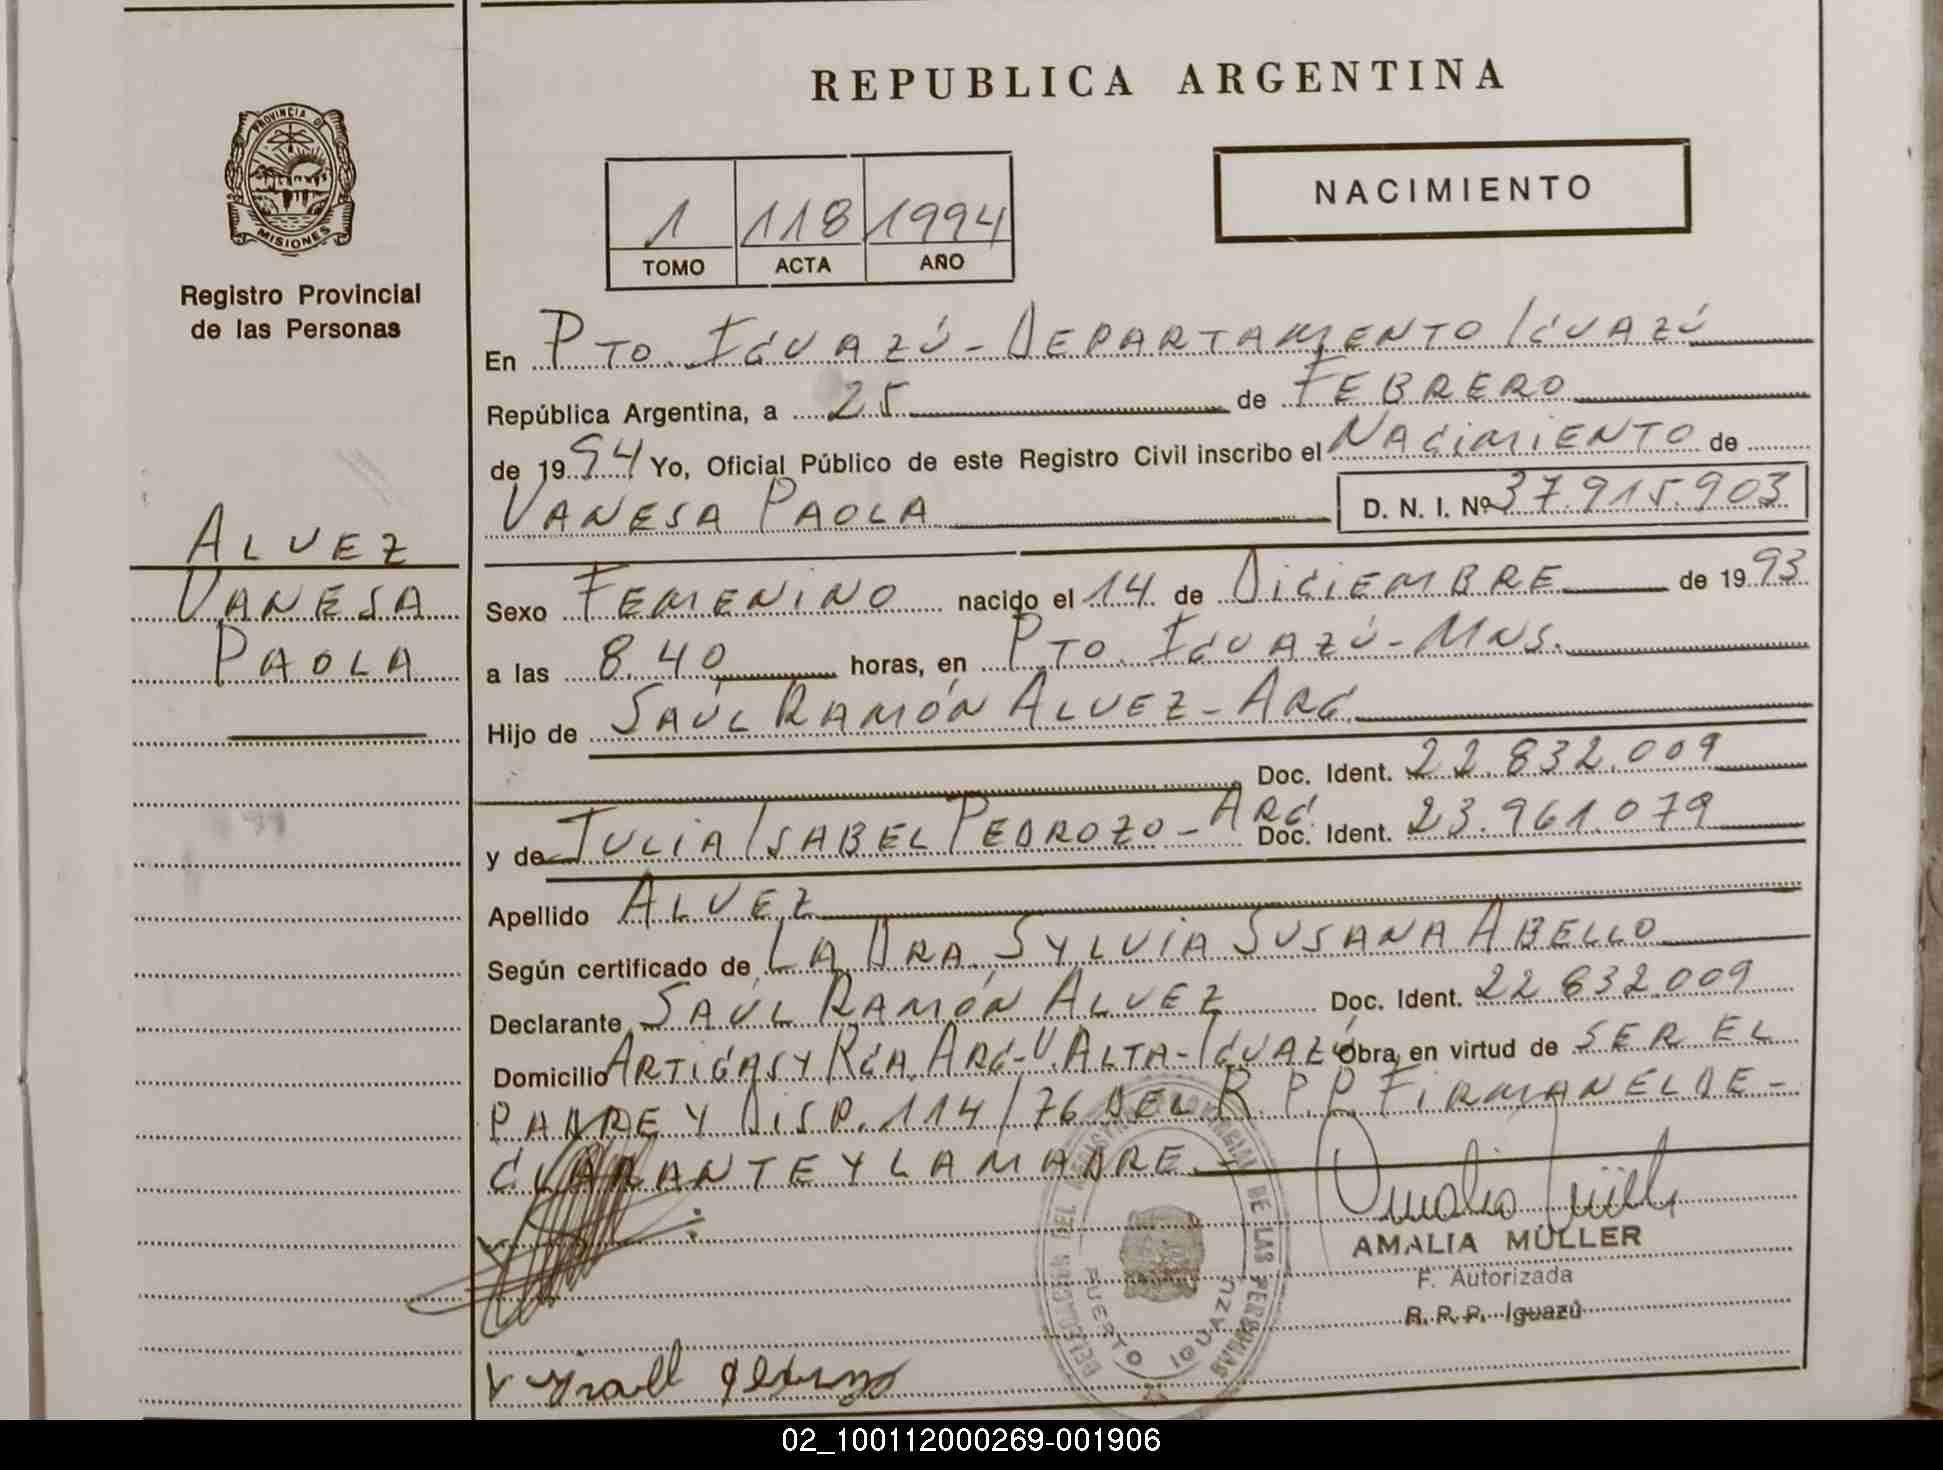 REPUBLICA ARGENTINA
PROVINCIA DE
MISIONES
Registro Provincial
de las Personas
1 118 1994
TOMO ACTA AÑO
NACIMIENTO
En PTO. IGUAZÚ - DEPARTAMENTO IGUAZÚ
República Argentina, a 25 de FEBRERO
de 1994 Yo, Oficial Público de este Registro Civil inscribo el NACIMIENTO de
VANESA PAOLA D. N. I. Nº 37.915.903
ALVEZ
VANESA
PAOLA
Sexo FEMENINO nacido el 14 de DICIEMBRE de 1993
a las 8.40 horas, en PTO. IGUAZÚ - MNS.
Hijo de SAÚL RAMÓN ALVEZ - ARG.
Doc. Ident. 22.832.009
y de JULIA ISABEL PEDROZO - ARG. Doc. Ident. 23.961.079
Apellido ALVEZ
Según certificado de LA DRA. SYLVIA SUSANA ABELLO
Declarante SAÚL RAMÓN ALVEZ Doc. Ident. 22.832.009
Domicilio ARTIGAS Y RCA. ARG - V. ALTA - IGUAZÚ Obra en virtud de SER EL
PADRE Y DISP. 114/76 DEL R.P.P. FIRMAN EL DE-
CLARANTE Y LA MADRE.
DELEGACION DEL REGISTRO PROVINCIAL DE LAS PERSONAS
PUERTO IGUAZÚ
Amalia Müller
AMALIA MÜLLER
F. Autorizada
R. P. P. Iguazú
02_100112000269-001906